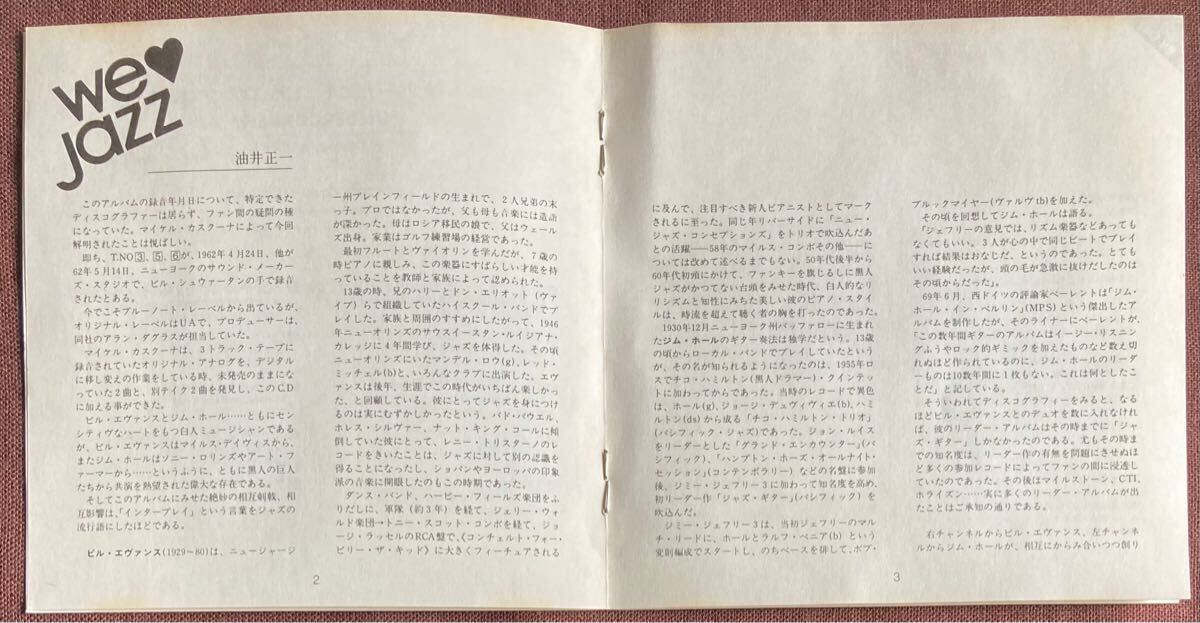 we♥
jazz
油井正一
このアルバムの録音年月日について、特定できた
ディスコグラファーは居らず、ファン間の疑問の種
になっていた。マイケル・カスクーナによって今回
解明されたことは悦ばしい。
即ち、T.NO③、⑤、⑥が、1962年4月24日、他が
62年5月14日、ニューヨークのサウンド・メーカー
ズ・スタジオで、ビル・シュヴァータンの手で録音
されたとある。
今でこそブルーノート・レーベルから出ているが、
オリジナル・レーベルはUAで、プロデューサーは、
同社のアラン・ダグラスが担当していた。
マイケル・カスクーナは、3トラック・テープに
録音されていたオリジナル・アナログを、デジタル
に移し変えの作業をしている時、未発売のままにな
っていた2曲と、別テイク2曲を発見し、このCD
に加える事ができた。
ビル・エヴァンスとジム・ホール……ともにセン
シティヴなハートをもつ白人ミュージシャンである
が、ビル・エヴァンスはマイルス・デイヴィスから、
またジム・ホールはソニー・ロリンズやアート・フ
ァーマーから……というふうに、ともに黒人の巨人
たちから共演を熱望された偉大な存在である。
そしてこのアルバムにみせた絶妙の相互刺戟、相
互影響は、「インタープレイ」という言葉をジャズの
流行語にしたほどである。
ビル・エヴァンス(1929〜80)は、ニュージャージ
ー州プレインフィールドの生まれで、2人兄弟の末
っ子。プロではなかったが、父も母も音楽には造詣
が深かった。母はロシア移民の娘で、父はウェール
ズ出身。家業はゴルフ練習場の経営であった。
最初フルートとヴァイオリンを学んだが、7歳の
時ピアノに親しみ、この楽器にすばらしい才能を持
っていることを教師と家族によって認められた。
13歳の時、兄のハリーとドン・エリオット(ヴァ
イブ)らで組織していたハイスクール・バンドでプ
レイした。家族と周囲のすすめにしたがって、1946
年ニューオリンズのサウスイースタン・ルイジアナ・
カレッジに4年間学び、ジャズを体得した。その頃
ニューオリンズにいたマンデル・ロウ(g)、レッド・
ミッチェル(b)と、いろんなクラブに出演した。エヴ
ァンスは後年、生涯でこの時代がいちばん楽しかっ
た、と回顧している。彼にとってジャズを身につけ
るのは実にむずかしかったという。バド・パウエル、
ホレス・シルヴァー、ナット・キング・コールに傾
倒していた彼にとって、レニー・トリスターノのレ
コードをきいたことは、ジャズに対して別の認識を
得ることになったし、ショパンやヨーロッパの印象
派の音楽に開眼したのもこの時期であった。
ダンス・バンド、ハービー・フィールズ楽団をふ
りだしに、軍隊(約3年)を経て、ジェリー・ウォ
ルド楽団→トニー・スコット・コンボを経て、ジョ
ージ・ラッセルのRCA盤で、《コンチェルト・フォー・
ビリー・ザ・キッド》に大きくフィーチュアされる
2
に及んで、注目すべき新人ピアニストとしてマーク
されるに至った。同じ年リバーサイドに「ニュー・
ジャズ・コンセプションズ」をトリオで吹込んだあ
との活躍——58年のマイルス・コンボその他——に
ついては改めて述べるまでもない。50年代後半から
60年代初頭にかけて、ファンキーを旗じるしに黒人
ジャズがかつてない白頭をみせた時代、白人的なリ
リシズムと知性にみちた美しい彼のピアノ・スタイ
ルは、時流を超えて聴く者の胸を打ったのであった。
1930年12月ニューヨーク州バッファローに生まれ
たジム・ホールのギター奏法は独学だという。13歳
の頃からローカル・バンドでプレイしていたという
が、その名が知られるようになったのは、1955年ロ
スでチコ・ハミルトン(黒人ドラマー)・クインテッ
トに加わってからであった。当時のレコードで異色
は、ホール(g)、ジョージ・デュヴィヴィエ(b)、ハミ
ルトン(ds)から成る「チコ・ハミルトン・トリオ」
(パシフィック・ジャズ)であった。ジョン・ルイス
をリーダーとした「グランド・エンカウンター」(パ
シフィック)、「ハンプトン・ホーズ・オールナイト・
セッション」(コンテンポラリー)などの名盤に参加
後、ジミー・ジェフリー3に加わって知名度を高め、
初リーダー作「ジャズ・ギター」(パシフィック)を
吹込んだ。
ジミー・ジェフリー3は、当初ジェフリーのマル
チ・リードに、ホールとラルフ・ペニア(b)という
変則編成でスタートし、のちベースを排して、ボブ・
ブルックマイヤー(ヴァルヴtb)を加えた。
その頃を回想してジム・ホールは語る。
「ジェフリーの意見では、リズム楽器などあっても
なくてもいい。3人が心の中で同じビートでプレイ
すれば結果はおなじだ、というのであった。とても
いい経験だったが、頭の毛が急激に抜けだしたのは
その頃からだった」。
69年6月、西ドイツの評論家ベーレントは「ジム・
ホール・イン・ベルリン」(MPS)という傑出したア
ルバムを制作したが、そのライナーにベーレントが、
「この数年間ギターのアルバムはイージー・リスニン
グふうやロック的ギミックを加えたものなど数え切
れぬほど作られているのに、ジム・ホールのリーダ
ーものは10数年間に1枚もない。これは何としたこ
とだ」と記している。
そういわれてディスコグラフィーをみると、なる
ほどビル・エヴァンスとのデュオを数に入れなけれ
ば、彼のリーダー・アルバムはその時までに「ジャ
ズ・ギター」しかなかったのである。尤もその時ま
での知名度は、リーダー作の有無を問題にさせぬほ
ど多くの参加レコードによってファンの間に浸透し
ていたのであった。その後はマイルストーン、CTI、
ホライズン……実に多くのリーダー・アルバムが出
たことはご承知の通りである。
右チャンネルからビル・エヴァンス、左チャンネ
ルからジム・ホールが、相互にからみ合いつつ創り
3